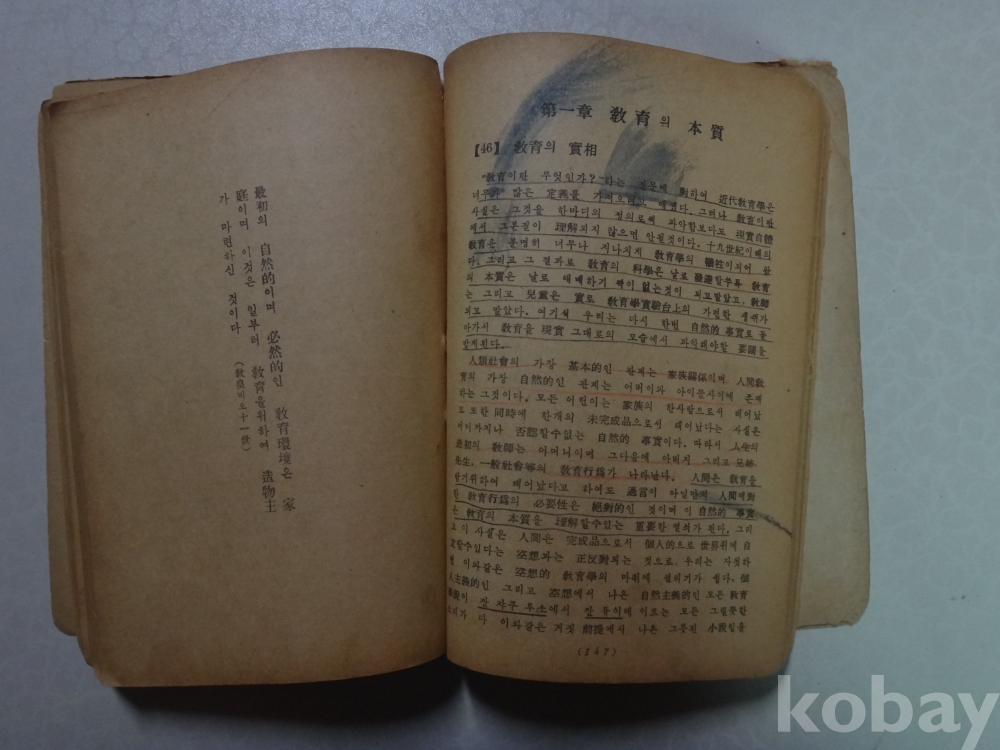 最初의 自然的이며 必然的인 敎育環境은 家
庭이며 이것은 일부러 敎育을위하여 造物主
가 마련하신 것이다
(敎皇비오十一世)
第一章 敎育의 本質
【46】 敎育의 實相
"敎育이란 무엇인가?"라는 질문에 對하여 近代敎育學은
너무나 많은 定義를 가지려고 애썼다. 그러나 敎育이란
사실은 그것을 한마디의 정의로써 파악함보다도 現實自體
에서 그본질이 理解되지 않으면 안될것이다. 十九世紀이래의
敎育은 분명히 너무나 지나치게 敎育學의 犧牲이되어 왔
다. 그리고 그 결과로 敎育의 科學은 날로 發達할수록 敎育
의 本質은 날로 애매하기 짝이 없는것이 되고말았고, 敎師
는 그리고 兒童은 實로 敎育學實驗台上의 가련한 생쥐가
되고 말았다. 여기서 우리는 다시 한번 自然的 事實로 돌
아가서 敎育을 現實 그대로의 모습에서 파악해야할 要請을
받게된다.
人類社會의 가장 基本的인 관계는 家族關係이며 人間敎
育의 가장 自然的인 관계는 어버이와 아이들사이에 존재
하는 그것이다. 모든 어린이는 家族의 한사람으로서 태어났
고 또한 同時에 한개의 未完成品으로서 태어났다는 사실은
어디까지나 否認할수없는 自然的 事實이다. 따라서 人生의
最初의 敎師는 어머니이며 그다음에 아버지 그리고 兄姉
先生, 一般社會等의 敎育行爲가 나타난다. 人間은 敎育을
받기위하여 태어났다고 하여도 過言이 아닐만치 人間에對
한 敎育行爲의 必要性은 絕對的인 것이며 이 自然的 事實
은 敎育의 本質을 理解할수있는 重要한 열쇠가 된다. 그리
고 이 사실은 人間은 完成品으로서 個人的으로 世界위에 存
定할수있다는 空想과는 正反對되는 것으로, 우리는 자칫하
면 이와같은 空想的 敎育學의 마취에 걸리기가 쉽다. 個
人主義的인 그리고 空想에서 나온 自然主義的인 모든 敎育
學說이 쟝 쟈쿠 루소에서 쟝 듀이에 이르는 모든 그럴듯한
소리가 다 이와같은 거짓 前提에서 나온 그릇된 小說임을
(147)
kobay